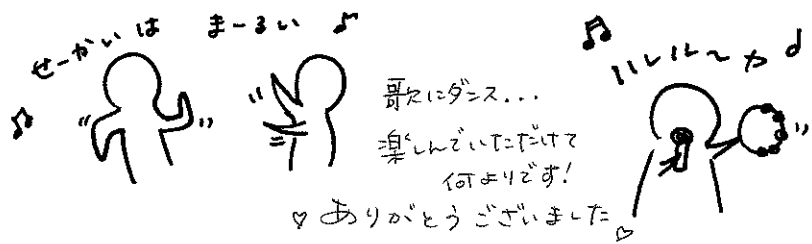 せーかいは まーるい
ハレル〜ヤ
歌にダンス...
楽しんでいただけて
何よりです!
♡ ありがとうございました ♡